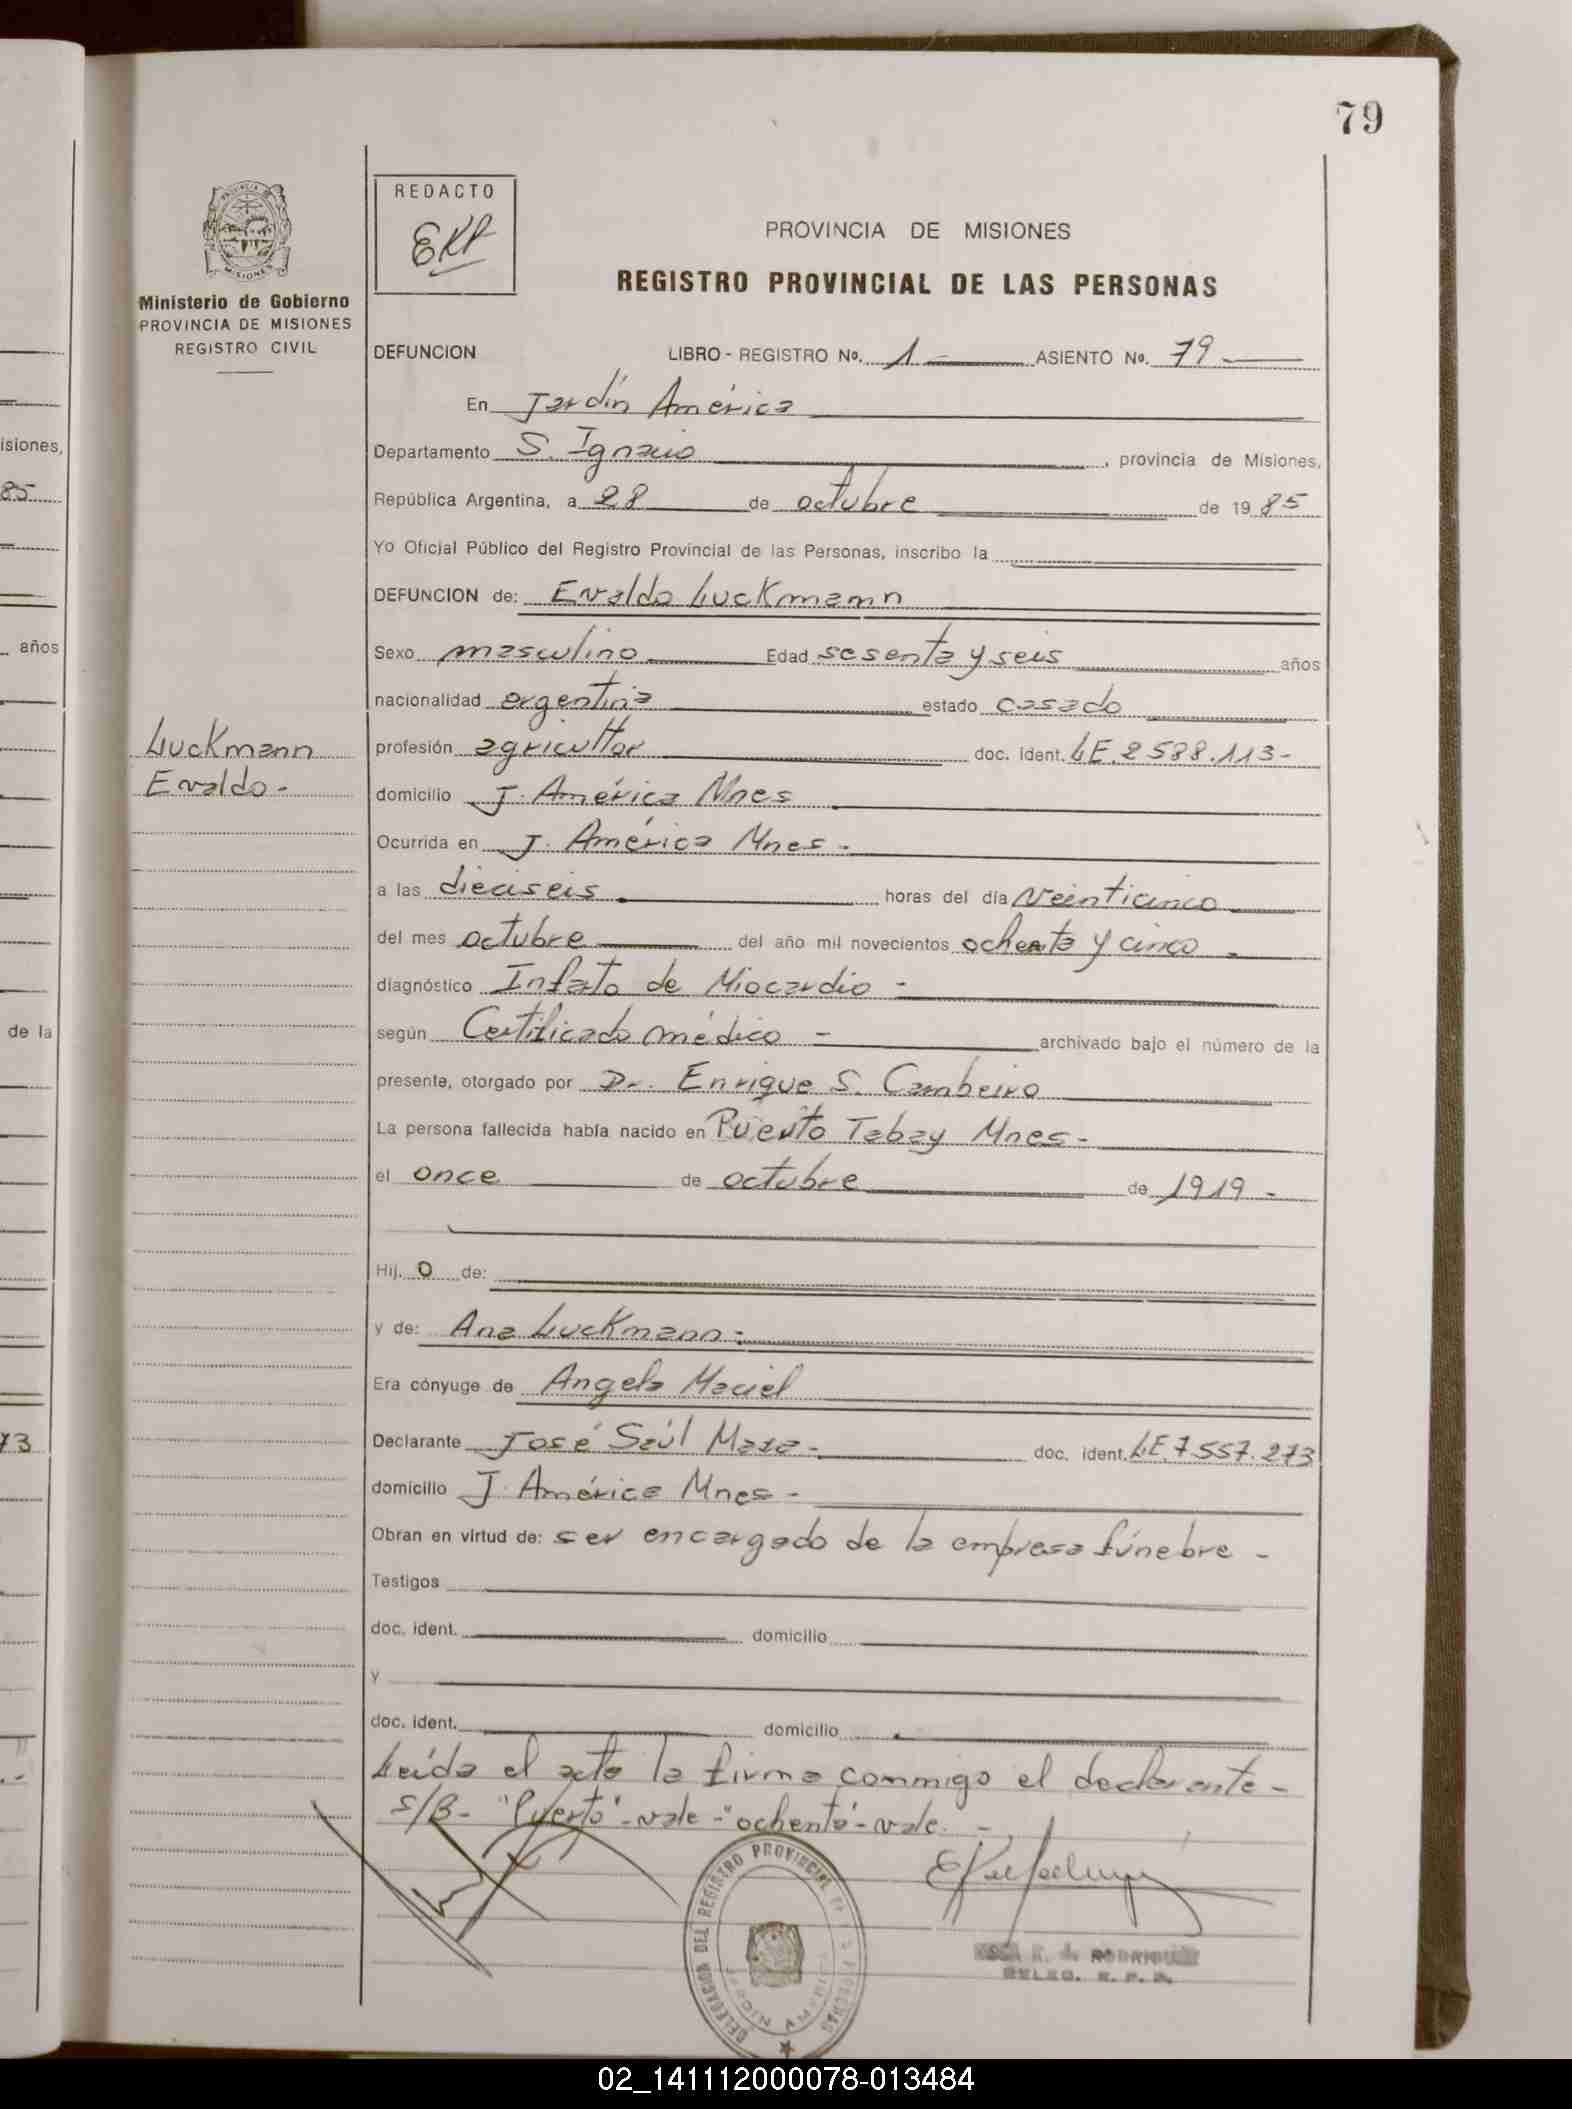 79
REDACTO
EKP
PROVINCIA DE MISIONES
REGISTRO PROVINCIAL DE LAS PERSONAS
MISIONES
Ministerio de Gobierno
PROVINCIA DE MISIONES
REGISTRO CIVIL
DEFUNCION LIBRO - REGISTRO Nº. 1 ASIENTO Nº. 79
En Jardín América
Departamento S. Ignacio, provincia de Misiones,
República Argentina, a 28 de octubre de 1985
Yo Oficial Público del Registro Provincial de las Personas, inscribo la
DEFUNCION de: Evaldo Luckmann
Sexo masculino Edad sesenta y seis años
nacionalidad argentina estado casado
Luckmann
Evaldo-
profesión agricultor doc. Ident. LE. 2 588.113-
domicilio J. América Mnes
Ocurrida en J. América Mnes-
a las dieciseis horas del día veinticinco
del mes octubre del año mil novecientos ochenta y cinco -
diagnóstico Infato de Miocardio -
según Certificado médico - archivado bajo el número de la
presente, otorgado por Dr. Enrique S. Cambeiro
La persona fallecida había nacido en Puerto Tabay Mnes-
el once de octubre de 1919 -
Hij. o de:
y de: Ana Luckmann:
Era cónyuge de Angela Maciel
Declarante José Saúl Masa- doc. ident. LE.7 557.273
domicilio J. América Mnes -
Obran en virtud de: ser encargado de la empresa fúnebre -
Testigos
doc. ident. domicilio
y
doc. ident. domicilio
Leída el acta la firma conmigo el declarante-
S/B- "Puerto"-vale-"ochenta"-vale. -
DELEGACION DEL REGISTRO PROVINCIAL DE LAS PERSONAS
JARDIN AMERICA
RODRIGUEZ
DELEG. R. P. P.
isiones,
85
años
de la
73
02_141112000078-013484